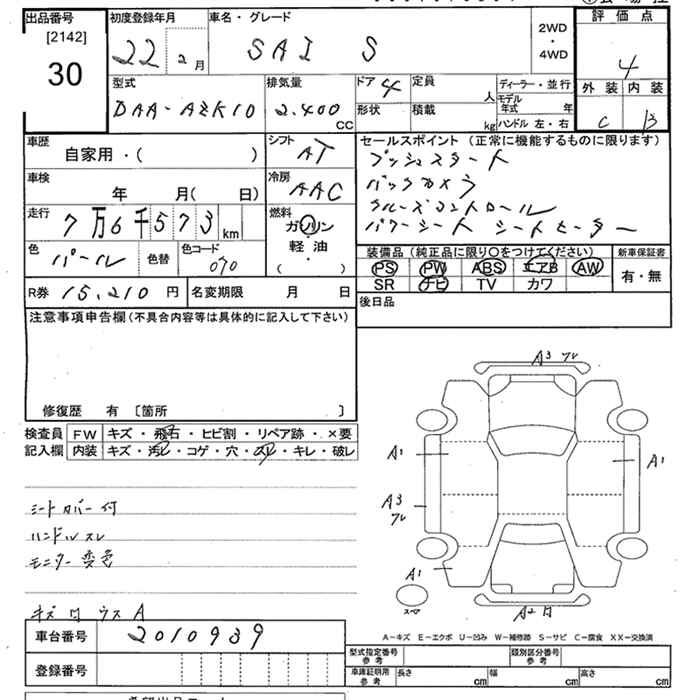 出品番号
[2142]
30
初度登録年月
22 2月
車名・グレード
SAI S
2WD
・
4WD
評価点
4
外装 内装
C B
型式
DAA-AZK10
排気量
2.400
CC
ドア 4
形状
定員
人
積載
kg
ディーラー・並行
モデル年式 年
ハンドル 左・右
車歴
自家用・( )
シフト
AT
車検
年 月( 日)
冷房
AAC
走行
7万6千573km
燃料
ガソリン
軽油
( ・ )
色
パール
色替
色コード
070
R券 15,210円
名変期限 月 日
セールスポイント (正常に機能するものに限ります)
プッシュスタート
バックカメラ
クルーズコントロール
パワーシート シートヒーター
装備品 (純正品に限り○をつけてください)
PS PW ABS エアB AW
SR ナビ TV カワ
新車保証書
有・無
後日品
注意事項申告欄(不具合内容等は具体的に記入して下さい)
修復歴 有 〔箇所 〕
検査員
記入欄
FW キズ・飛石・ヒビ割・リペア跡・×要
内装 キズ・汚レ・コゲ・穴・スレ・キレ・破レ
シートカバー付
ハンドルスレ
モニター変色
キズ 凹 ウス A
A3 ワレ
A1
A1
A3
ワレ
A1
スペア
A2凹
A-キズ E-エクボ U-凹み W-補修跡 S-サビ C-腐食 XX-交換済
車台番号 2010939
登録番号
型式指定番号
参考
類別区分番号
参考
車庫証明用
参考
長さ cm
幅 cm
高さ cm